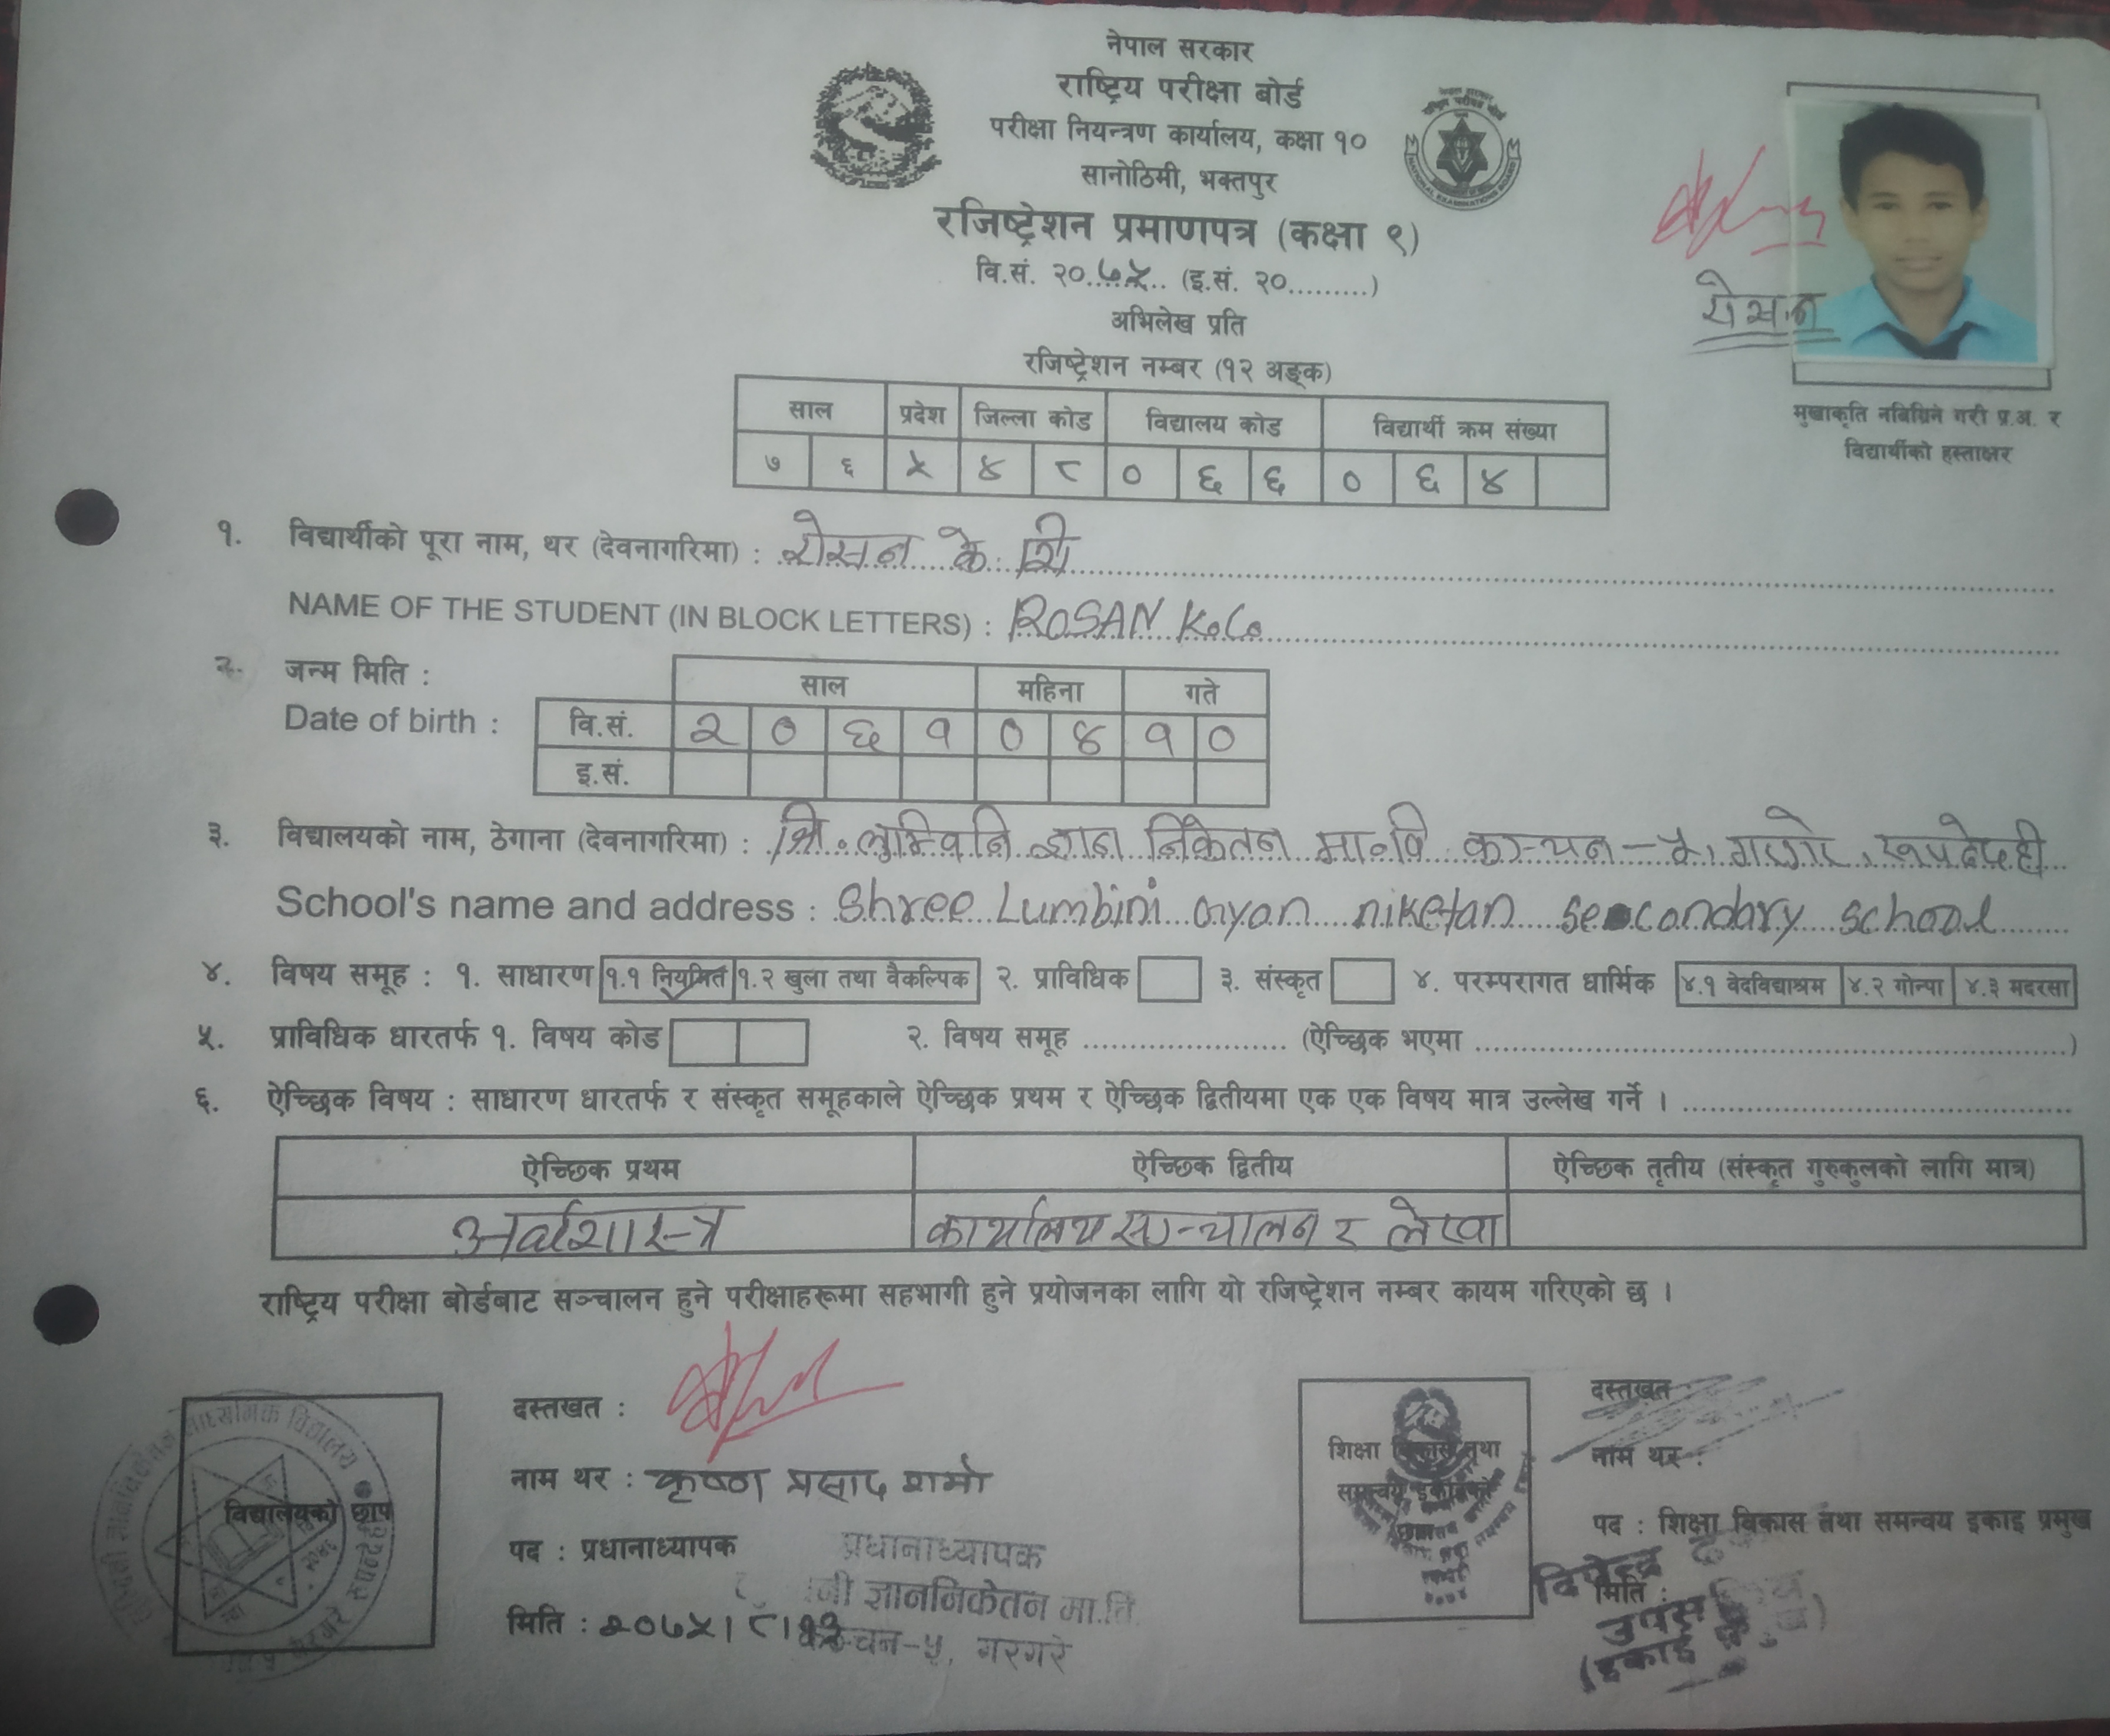 नेपाल सरकार
राष्ट्रिय परीक्षा बोर्ड
परीक्षा नियन्त्रण कार्यालय, कक्षा १०
सानोठिमी, भक्तपुर
रजिष्ट्रेशन प्रमाणपत्र (कक्षा ९)
वि.सं. २०७५ (इ.सं. २०.........)
अभिलेख प्रति
रजिष्ट्रेशन नम्बर (१२ अङ्क)
रोसन
मुखाकृति नबिग्रिने गरी प्र.अ. र
विद्यार्थीको हस्ताक्षर
साल प्रदेश जिल्ला कोड विद्यालय कोड विद्यार्थी क्रम संख्या
७ ६ ५ ४ ८ ० ६ ६ ० ६ ४
१. विद्यार्थीको पूरा नाम, थर (देवनागरिमा) : रोसन के. सि
NAME OF THE STUDENT (IN BLOCK LETTERS) : ROSAN K.C.
२. जन्म मिति :
साल महिना गते
Date of birth : वि.सं. २ ० ६ १ ० ४ १ ०
इ.सं.
३. विद्यालयको नाम, ठेगाना (देवनागरिमा) : श्रि. लुम्विनि ज्ञान निकेतन मा०वि कान्चन-५,
School's name and address : Shree Lumbini gyan niketan secondary school
४. विषय समूह : १. साधारण १.१ नियमित १.२ खुला तथा वैकल्पिक २. प्राविधिक ३. संस्कृत ४. परम्परागत धार्मिक ४.१ वेदविद्याश्रम ४.२ गोन्पा ४.३ मदरसा
५. प्राविधिक धारतर्फ १. विषय कोड २. विषय समूह ...................... (ऐच्छिक भएमा ......................)
६. ऐच्छिक विषय : साधारण धारतर्फ र संस्कृत समूहकाले ऐच्छिक प्रथम र ऐच्छिक द्वितीयमा एक एक विषय मात्र उल्लेख गर्ने ।
ऐच्छिक प्रथम ऐच्छिक द्वितीय ऐच्छिक तृतीय (संस्कृत गुरुकुलको लागि मात्र)
अर्थशास्त्र कार्यालय सन्चालन र लेखा
राष्ट्रिय परीक्षा बोर्डबाट सञ्चालन हुने परीक्षाहरूमा सहभागी हुने प्रयोजनका लागि यो रजिष्ट्रेशन नम्बर कायम गरिएको छ ।
विद्यालयको छाप
दस्तखत :
नाम थर : कृष्ण प्रसाद शर्मा
पद : प्रधानाध्यापक
प्रधानाध्यापक
ज्ञाननिकेतन मा.वि
मिति : २०७५।८।१३
कञ्चन-५, गरगरे
शिक्षा विकास तथा
समन्वय इकाईको
छाप
दस्तखत
नाम थर :
पद : शिक्षा विकास तथा समन्वय इकाइ प्रमुख
मिति :